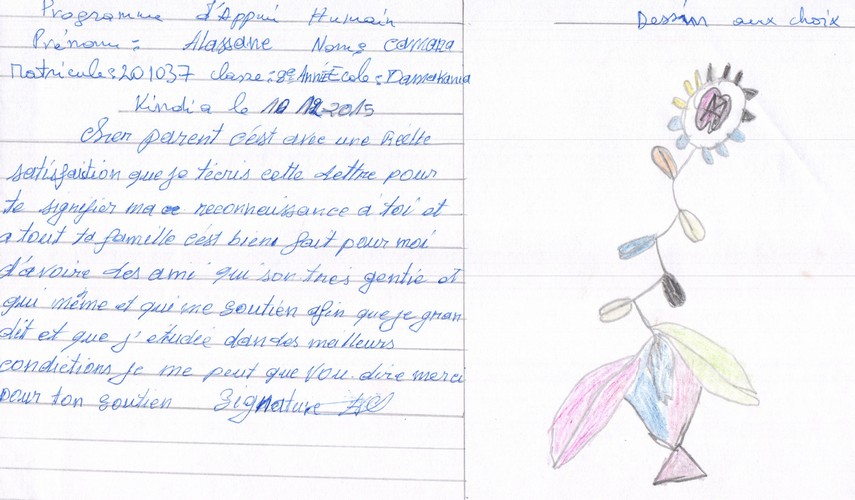 Programme d'Appui Humain
Prénom: Alassane Nom: camara
Matricule: 201037 classe: 8e Année Ecole: Damakania
Kindia le 10 12-2015
Cher parent c'est avec une Réelle
satisfaition que je t'écris cette Lettre pour
te signifier ma reconnaissance à toi et
a tout ta famille c'est bien fait pour moi
d'avoire des ami qui son très gentie et
qui même et qui me soutien afin que je gran
dit et que j'etudie dan des meilleurs
condictions je me peut que Vou dire merci
pour ton soutien Signature
Dessin aux choix